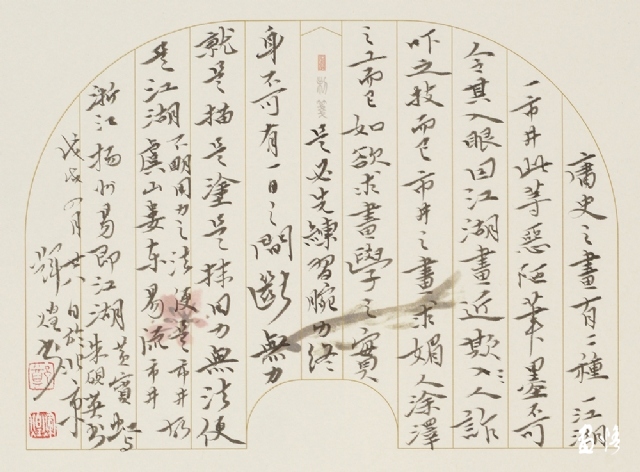 庸史之畫有二種一江湖
一市井此等惡陋筆墨不可
令其入眼因江湖畫近欺入人詐
吓之技而已市井之畫求媚人塗澤
之工而已如欲求畫學之實
是必先練習腕力終
身不可有一日之間斷無力
就是描是塗是抹用力無法便
是江湖不明用力之法便是市井故
虞山婁東易流市井
浙江揚州易即江湖黃賓虹
朱硯英書
戊戌四月廿八日於
輝煌書